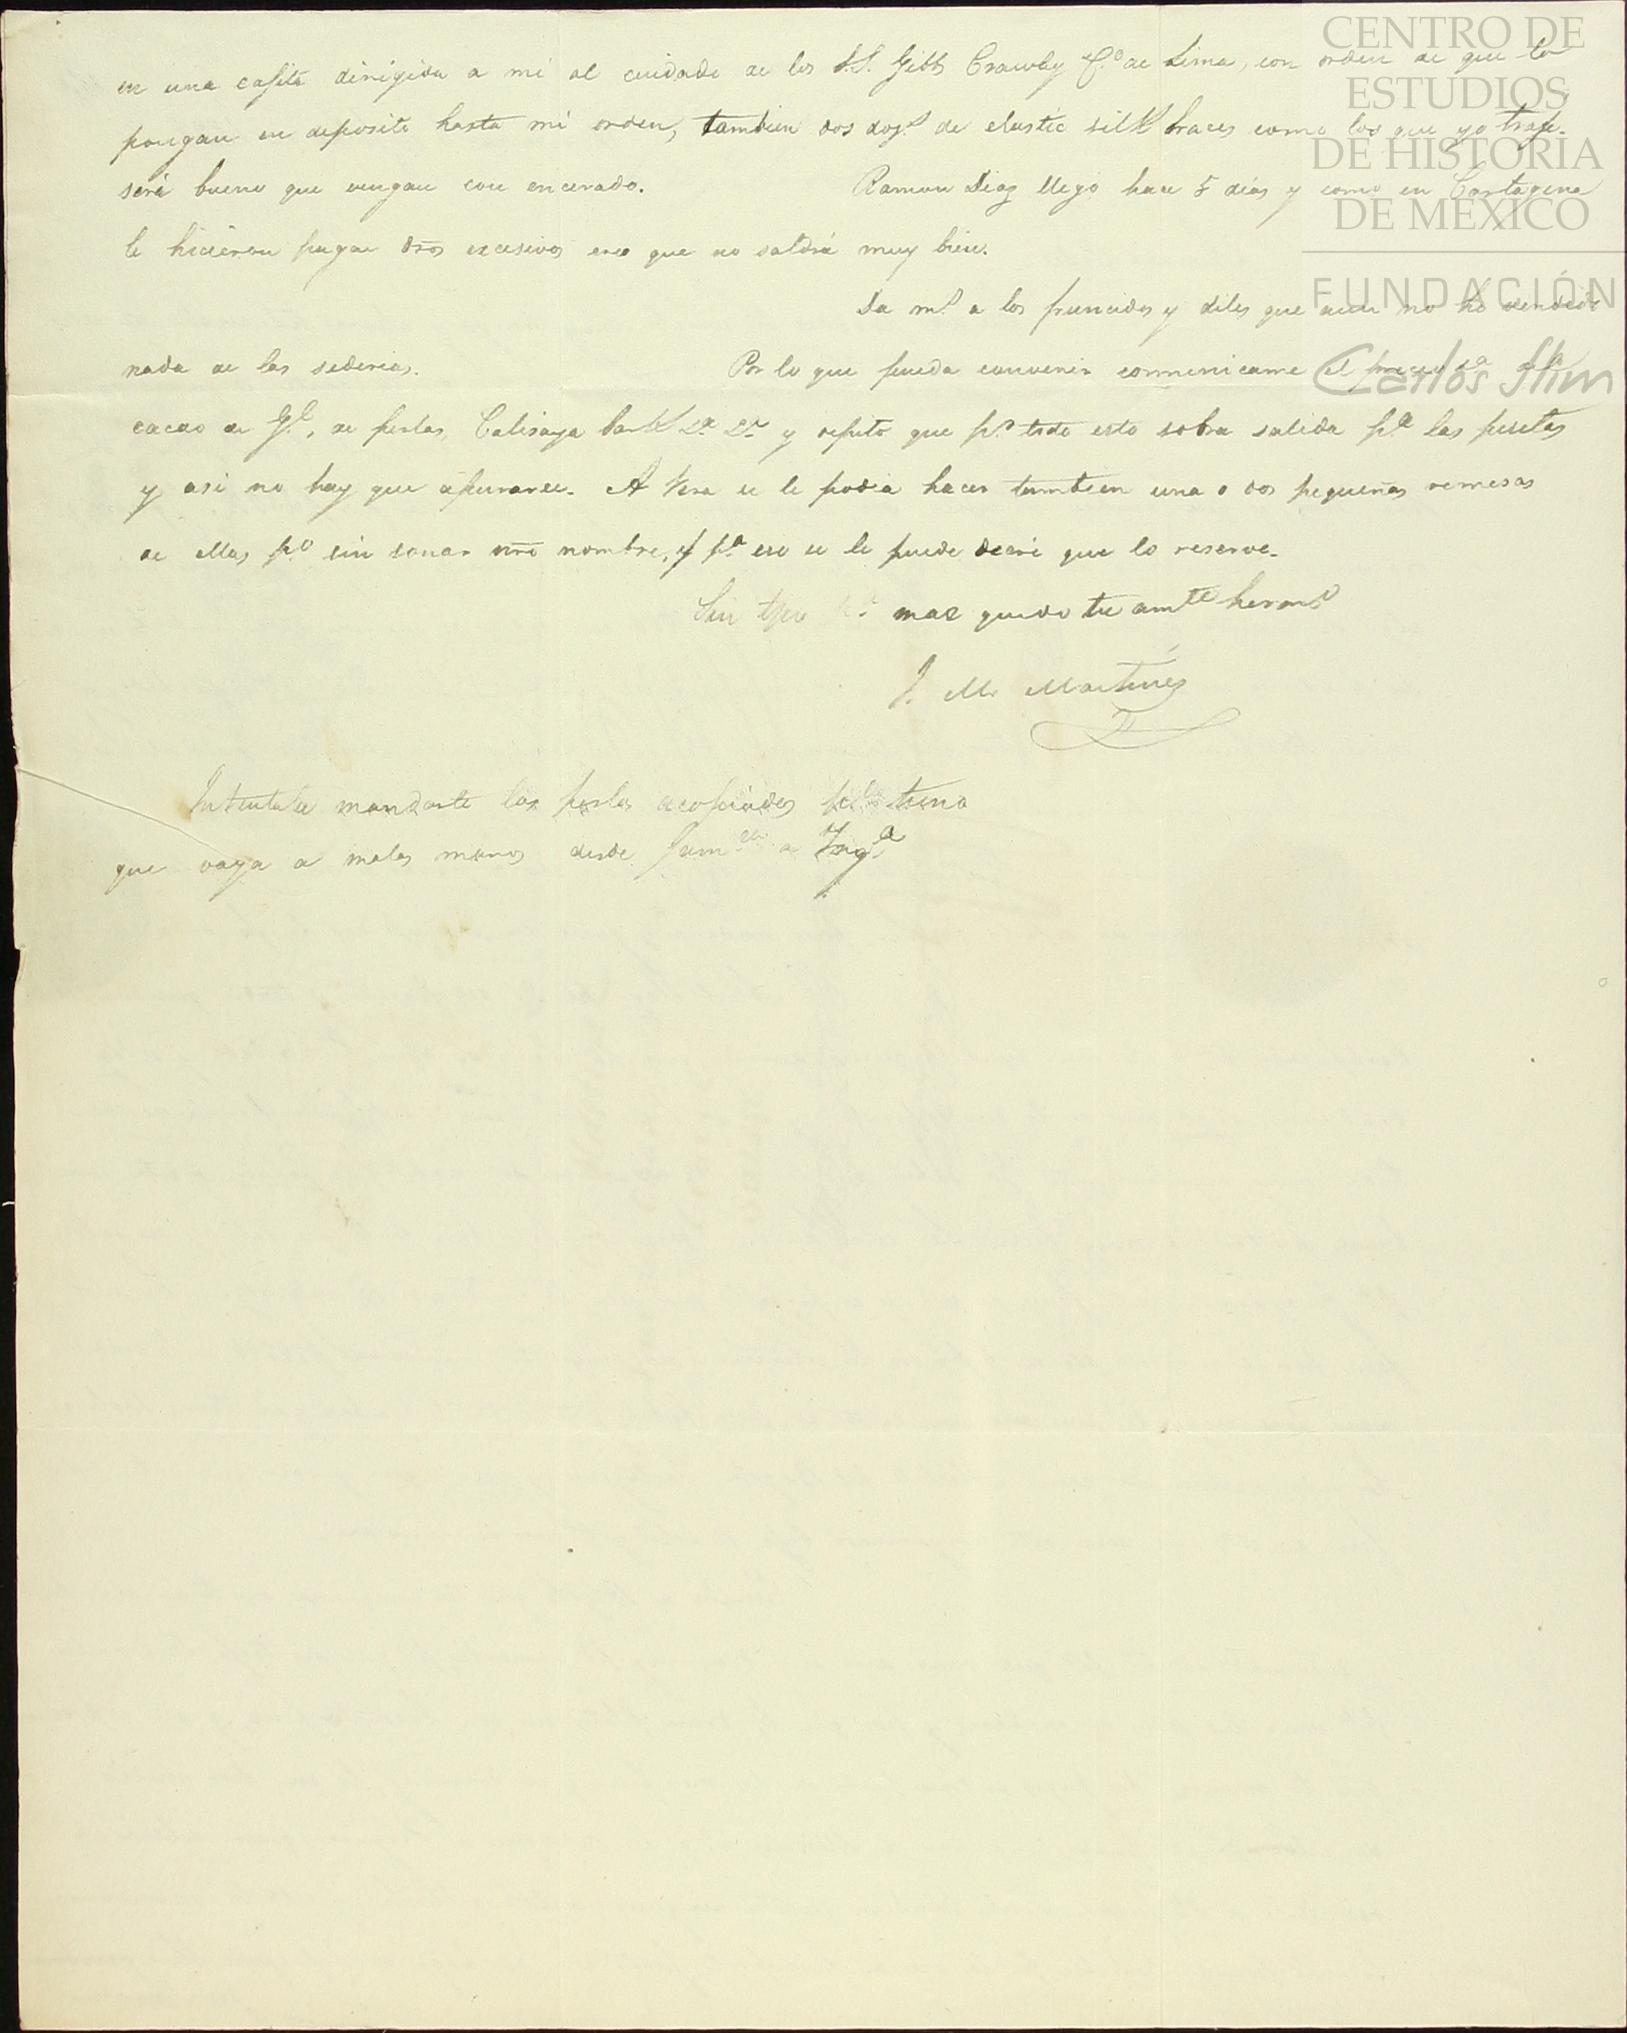 CENTRO DE
ESTUDIOS
DE HISTORIA
DE MÉXICO
FUNDACIÓN
Carlos Slim
en una cajita dirigida a mi al cuidado de los S.S. Gibbs Crawley C.º de Lima, con orden de que la
pongan en deposito hasta mi orden, tambien dos doz.s de elastic silk braces como los que yo traje.
será bueno que vengan con encerado. Ramon Diaz llegó hace 5 dias y como en Cartagena
le hicieron pagar dros excesivos creo que no saldrá muy bien.
Da m.s a los fruncidos y diles que aun no he vendido
nada de las sederias. Por lo que pueda convenir comunicame el
cacao de G.l, de perlas, Calisaya bark &.a &.a y repito que p.a todo esto sobra salida p.a las pesetas
y asi no hay que apurarse. A Vera se le podia hacer tambien una o dos pequeñas remesas
de ellas p.o sin sonar nño nombre, y p.a eso se le puede decir que lo reserve.
Sin mas quedo tu am.te herm.o
J. M. Martinez
mandarte las perlas acopiadas temo
que vaya a malas manos desde Jam.ca a Ing.a